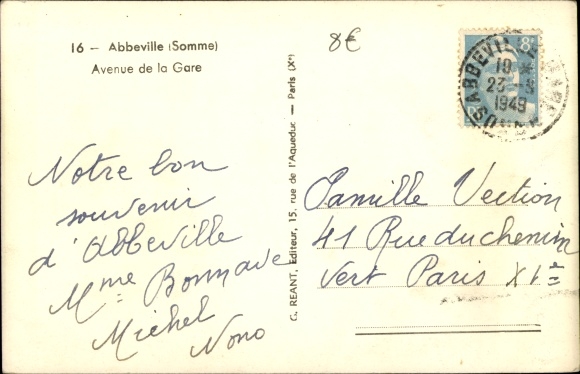 16 — Abbeville (Somme)
Avenue de la Gare
8€
8F
ABBEVILLE
10
23 - 8
1949
SOMME
Notre bon
souvenir
d'Abbeville
Mme Bonnave
Michel
Nono
C. REANT, Editeur, 15, rue de l'Aqueduc — Paris (Xe)
Famille Vection
41 Rue du chemin
Vert Paris XIe